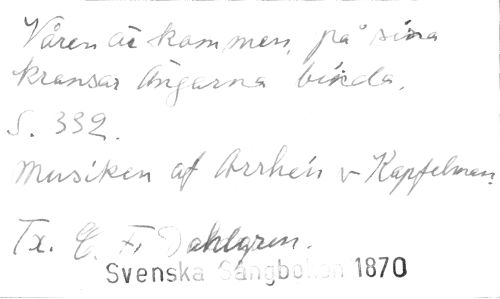 Våren är kommen, på sina
kransar Ängarna binda.
S. 332.
Musiken af Arrhén v Kapfelman.
Tx. C. F. Dahlgren.
Svenska Sångboken 1870